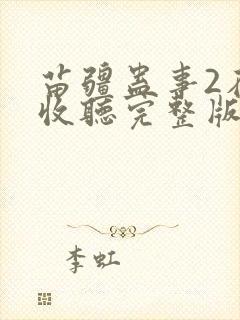 苗疆蛊事2在
收聽完整版
李虹